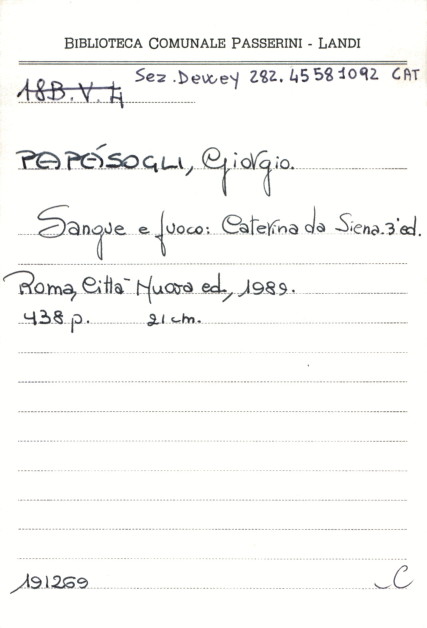 BIBLIOTECA COMUNALE PASSERINI - LANDI
Sez. Dewey 282.45581092 CAT
18B.V.4
PAPÁSOGLI, Giorgio.
Sangue e fuoco: Caterina da Siena. 3ª ed.
Roma, Città Nuova ed., 1989.
438 p. 21 cm.
191269 C